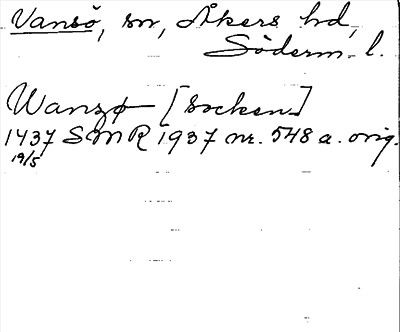 Vansö, sn, Åkers hd,
Söderm. l.
Wansø [socken]
1437 SMR 1937 nr. 548 a. orig.
19/5